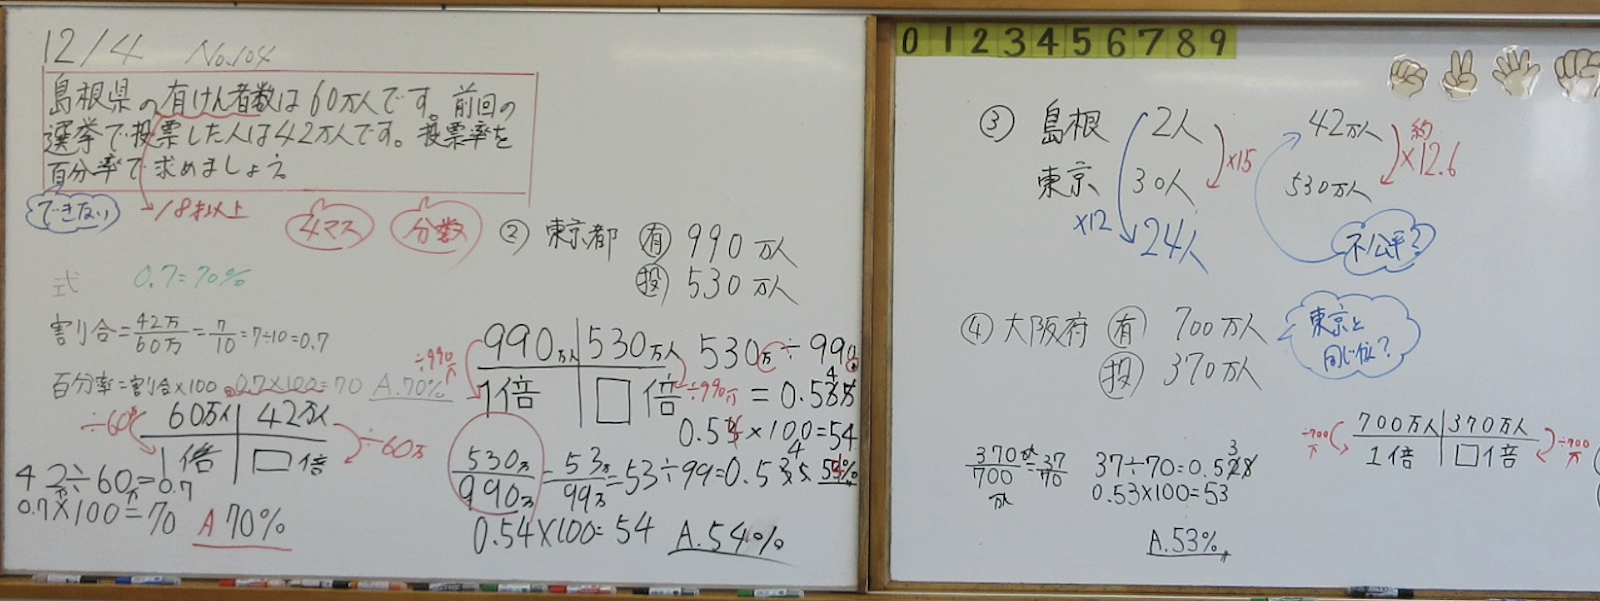 12/4 No.104
島根県の有けん者数は60万人です。前回の
選挙で投票した人は42万人です。投票率を
百分率で求めましょう。
できない
18才以上
4マス
分数
式
0.7=70%
割り合=42万/60万=7/10=7÷10=0.7
百分率=割り合×100 0.7×100=70 A.70%
÷60万
60万人 42万人
1倍 □倍
÷60万
42万÷60万=0.7
0.7×100=70
A 70%
② 東京都 有 990万人
投 530万人
÷990万
990万人 530万人
1倍 □倍
÷990万
530万÷990
=0.535
4
0.54×100=54
54%
530万/990万=53万/99万=53÷99=0.535
4
0.54×100=54
A.54%
0 1 2 3 4 5 6 7 8 9
③ 島根 2人 42万人
×15
約×12.6
東京 30人 530万人
×12
24人
不公平?
④ 大阪府 有 700万人
投 370万人
東京と
同じ位?
÷700万
700万人 370万人
1倍 □倍
÷700万
370万/700万=37/70
37÷70=0.528
3
0.53×100=53
A.53%